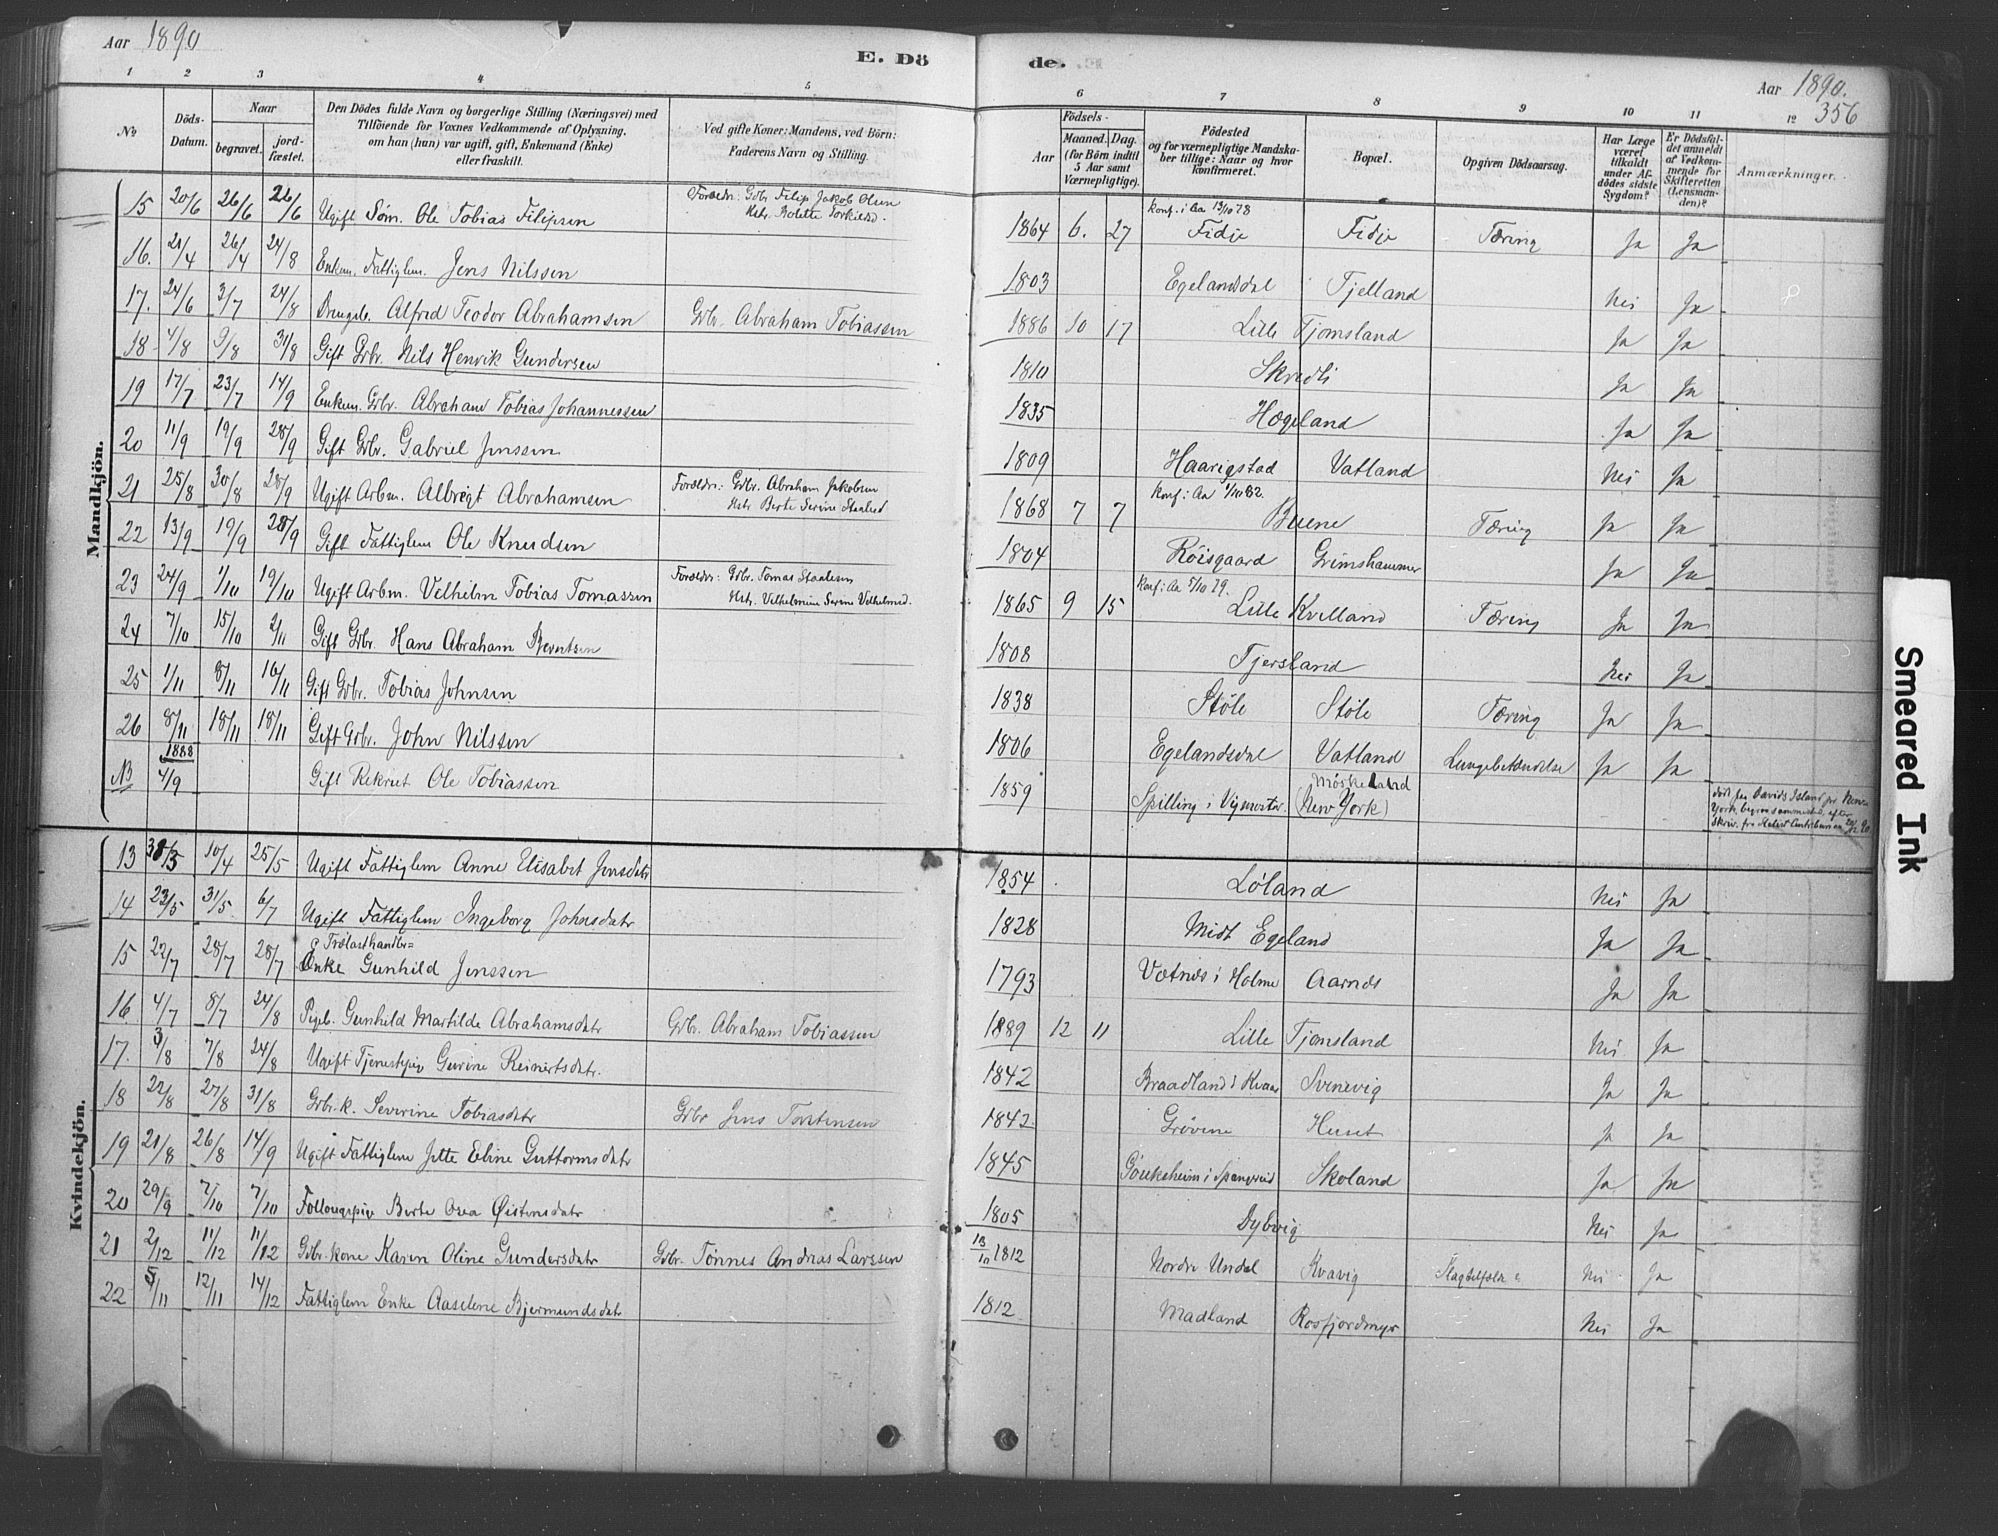 Aar 1890
E. Dö
de.
Aar 1890.
356
1 2 3 4 5 6 7 8 9 10 11 12
No
Döds-Datum.
Naar
begravet.
jordfæstet.
Den Dödes fulde Navn og borgerlige Stilling (Næringsvei) med
Tilföiende for Voxnes Vedkommende af Oplysning,
om han (hun) var ugift, gift, Enkemand (Enke)
eller fraskilt.
Ved gifte Koner: Mandens, ved Börn:
Faderens Navn og Stilling.
Födsels-
Aar
Maaned. Dag.
(for Börn indtil
5 Aar samt
Værnepligtige).
Födested
og for værnepligtige Mandska-
ber tillige: Naar og hvor
konfirmeret.
Bopæl.
Opgiven Dödsaarsag.
Har Læge
været
tilkaldt
under Af-
dödes sidste
Sygdom?
Er Dödsfal-
det anmeldt
af Vedkom-
mende for
Skifteretten
(Lensman-
den)?
Anmærkninger.
Mandkjön.
15 20/6 26/6 26/6 Ugift Søm. Ole Tobias Filipsen Forældr: Gbr Filip Jakob Olsen Hstr. Rolette Torkilsd. 1864 6. 27 konf. i Aa 13/10 78 Fidje Fidje Tæring Ja Ja
16. 21/4 26/4 24/8 Enkem. Fattiglem. Jens Nilssen 1803 Egelandsdal Tjelland Nei Ja
17. 24/6 3/7 24/8 Drengeb. Alfred Teodor Abrahamsen Gbr. Abraham Tobiassen 1886 10 17 Lille Tjomsland Ja Ja
18 4/8 9/8 31/8 Gift Gbr. Nils Henrik Gundersen 1810 Skredli Ja Ja
19 17/7 23/7 14/9 Enkem. Gbr. Abraham Tobias Johannessen 1835 Hægeland Ja Ja
20 11/9 19/9 28/9 Gift Gbr. Gabriel Jenssen 1809 Haarigstad Vatland Nei Ja
21 25/8 30/8 28/9 Ugift Arbm. Albregt Abrahamsen Forældr: Gbr. Abraham Jakobsen Hstr Berte Serine Staalesd 1868 7 7 konf: Aa 1/10 82. Buene Tæring Ja Ja
22 13/9 19/9 28/9 Gift Fattiglem Ole Knudsen 1804 Røisgaard Grimshammer Ja Ja
23 24/9 1/10 19/10 Ugift Arbm. Vilhelm Tobias Tomassen Forældr: Gbr. Tomas Staalesen Hstr. Vilhelmine Serine Vilhelmsd. 1865 9 15 konf: Aa 5/10 79. Lille Kvelland Tæring Ja Ja
24 7/10 15/10 2/11 Gift Gbr. Hans Abraham Berentsen 1808 Tjersland Nei Ja
25 1/11 8/11 16/11 Gift Gbr. Tobias Johnsen 1838 Støle Støle Tæring Ja Ja
26 8/11 18/11 18/11 Gift Gbr. John Nilssen 1806 Egelandsdal Vatland Lungebetændelse Ja Ja
NB 1888 4/9 Gift Rekrut Ole Tobiassen 1859 Spilling i Vigmostad Møskeland (New York) død paa Davids Island pr New-York
Kvindekjön.
13 31/3 10/4 25/5 Ugift Fattiglem Anne Elisabet Jensdatr 1854 Løland Nei Ja
14 23/5 31/5 6/7 Ugift Fattiglem Ingeborg Johnsdatr 1828 Midt Egeland Ja Ja
15 22/7 28/7 28/7 Trælasthandler= Enke Gunhild Jenssen 1793 Vatnes i Holme Aarnes Ja Ja
16. 4/7 8/7 24/8 Pigeb. Gunhild Martilde Abrahamsdatr Gbr. Abraham Tobiassen 1889 12 11 Lille Tjomsland Nei Ja
17. 3/8 7/8 24/8 Ugift Tjenestepige Gurine Reinertsdatr. 1842 Braadland i Kvaas Svenevig Ja Ja
18 22/8 27/8 31/8 Gbr.k. Severine Tobiasdatr Gbr Jens Torstensen 1842 Grøvene Huset Ja Ja
19 21/8 26/8 14/9 Ugift Fattiglem Jette Eline Guttormsdatr 1845 Skoland Ja Ja
20 29/9 7/10 7/10 Føllougspige Berte Asea Øistensdatr 1805 Dybvig Nei Ja
21 2/12 11/12 11/12 Gbr. kone Karen Oline Gundersdatr Gbr. Tønnes Andreas Larssen 13/10 1812 Nordre Undal Kvavig Nei Ja
22 5/11 12/11 14/12 Fattiglem Enke Aaselene Bjermundsdatr 1812 Madland Rosfjordmyr Nei Ja
Smeared Ink